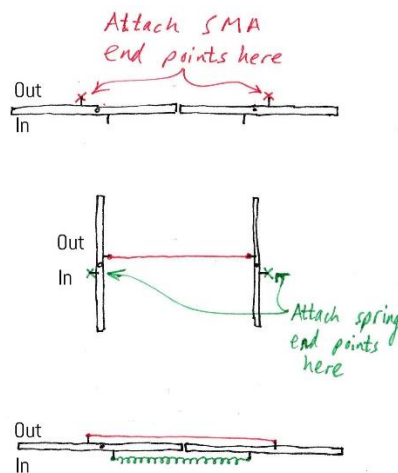 Attach SMA
end points here
Out
In
Out
In
Attach spring
end points
here
Out
In